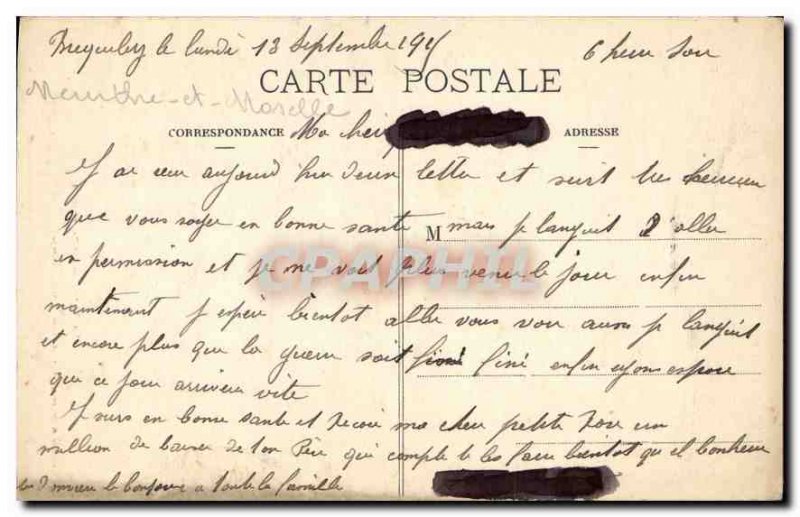 le lundi 13 Septembre 1915 6 heure Soir
CARTE POSTALE
Meurthe-et-Moselle
CORRESPONDANCE Ma ADRESSE
J ai aujourd hui deux letter et suit tres heureux
que vous soyer en bonne sante M mais je languit d'aller
CPAPHIL
en permission et je ne voit plus venir le jour enfin
maintenant j espere bientot aller vous voir aussi je languit
et encore plus que la guerre soit fini enfin espere
que ce jour arrivera vite
Je suis en bonne sante et ma cher petite un
million de baiser de ton Père qui compte les bientot qu el bonheur
le bonjour a toute la famille